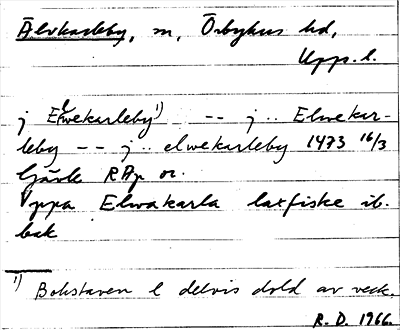 Älvkarleby, sn, Örbyhus hd,
Upp. l.
j Elwekarleby¹⁾ -- j .. Elwekar-
leby -- j .. elwekarleby 1473 16/3
Gävle RAp or.
Vppa Elwakarla laxfiske ib.
bak
¹⁾ Bokstaven l delvis dold av veck.
R. D. 1966.